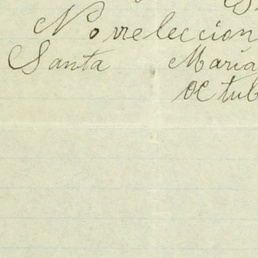 No reeleccion
Santa Maria
octub